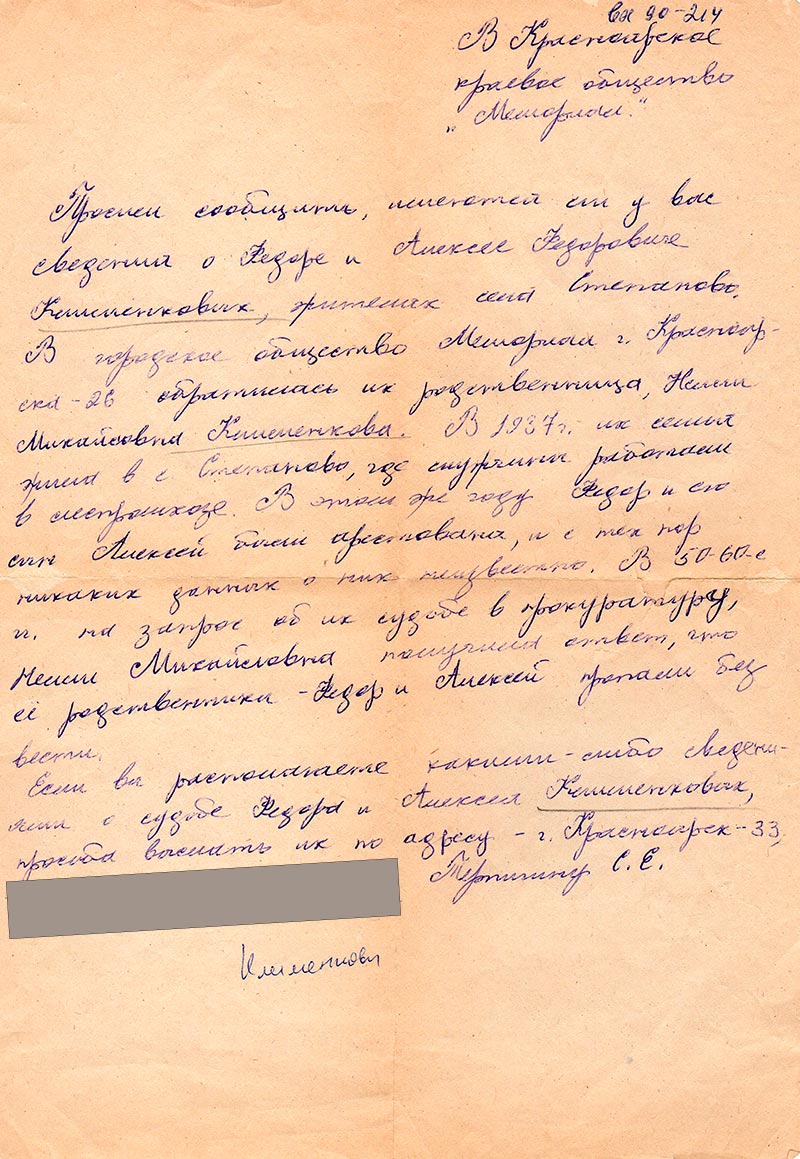 вх 90-214
В Красноярское
краевое общество
"Мемориал."
Просим сообщить, имеются ли у вас
сведения о Федоре и Алексее Федоровиче
Клименковых, жителях села Степаново.
В городское общество Мемориал г. Краснояр-
ска-26 обратилась их родственница, Нелли
Михайловна Клименкова. В 1937г. их семья
жила в с. Степаново, где мужчины работали
в леспромхозе. В этом же году Федор и его
сын Алексей были арестованы, и с тех пор
никаких данных о них неизвестно. В 50-60-е
гг. на запрос об их судьбе в прокуратуру,
Нелли Михайловна получила ответ, что
её родственники - Федор и Алексей пропали без
вести.
Если вы располагаете какими-либо сведени-
ями о судьбе Федора и Алексея Клименковых,
просьба выслать их по адресу - г. Красноярск-33,
С. Е.
Клименкова